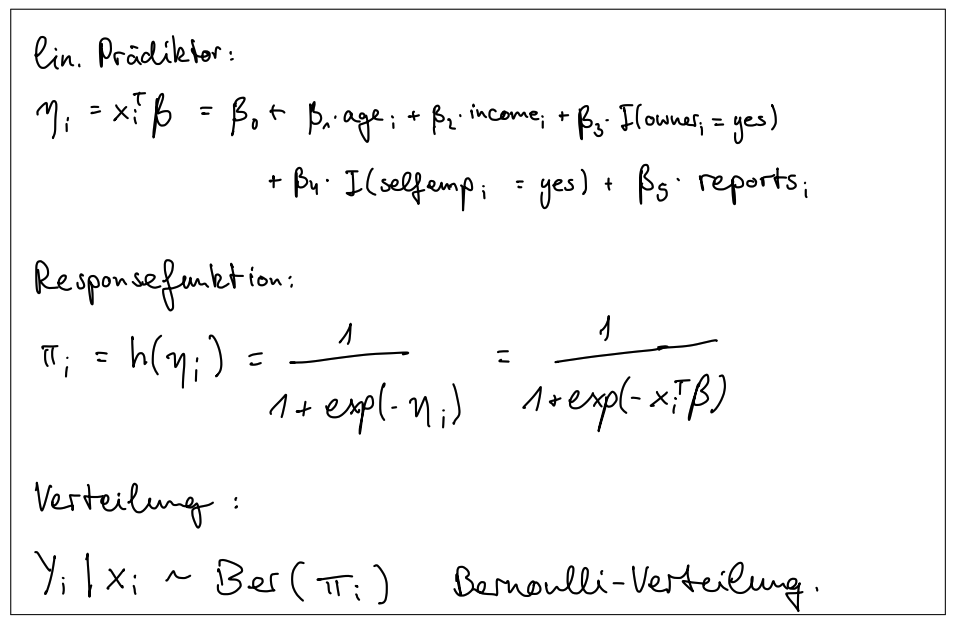 lin. Prädiktor:
ηᵢ = xᵢᵀβ = β₀ + β₁·ageᵢ + β₂·incomeᵢ + β₃·I(ownerᵢ = yes)
+ β₄·I(selfempᵢ = yes) + β₅·reportsᵢ
Responsefunktion:
πᵢ = h(ηᵢ) = 1 / (1 + exp(-ηᵢ)) = 1 / (1 + exp(-xᵢᵀβ))
Verteilung:
yᵢ | xᵢ ~ Ber(πᵢ) Bernoulli-Verteilung.